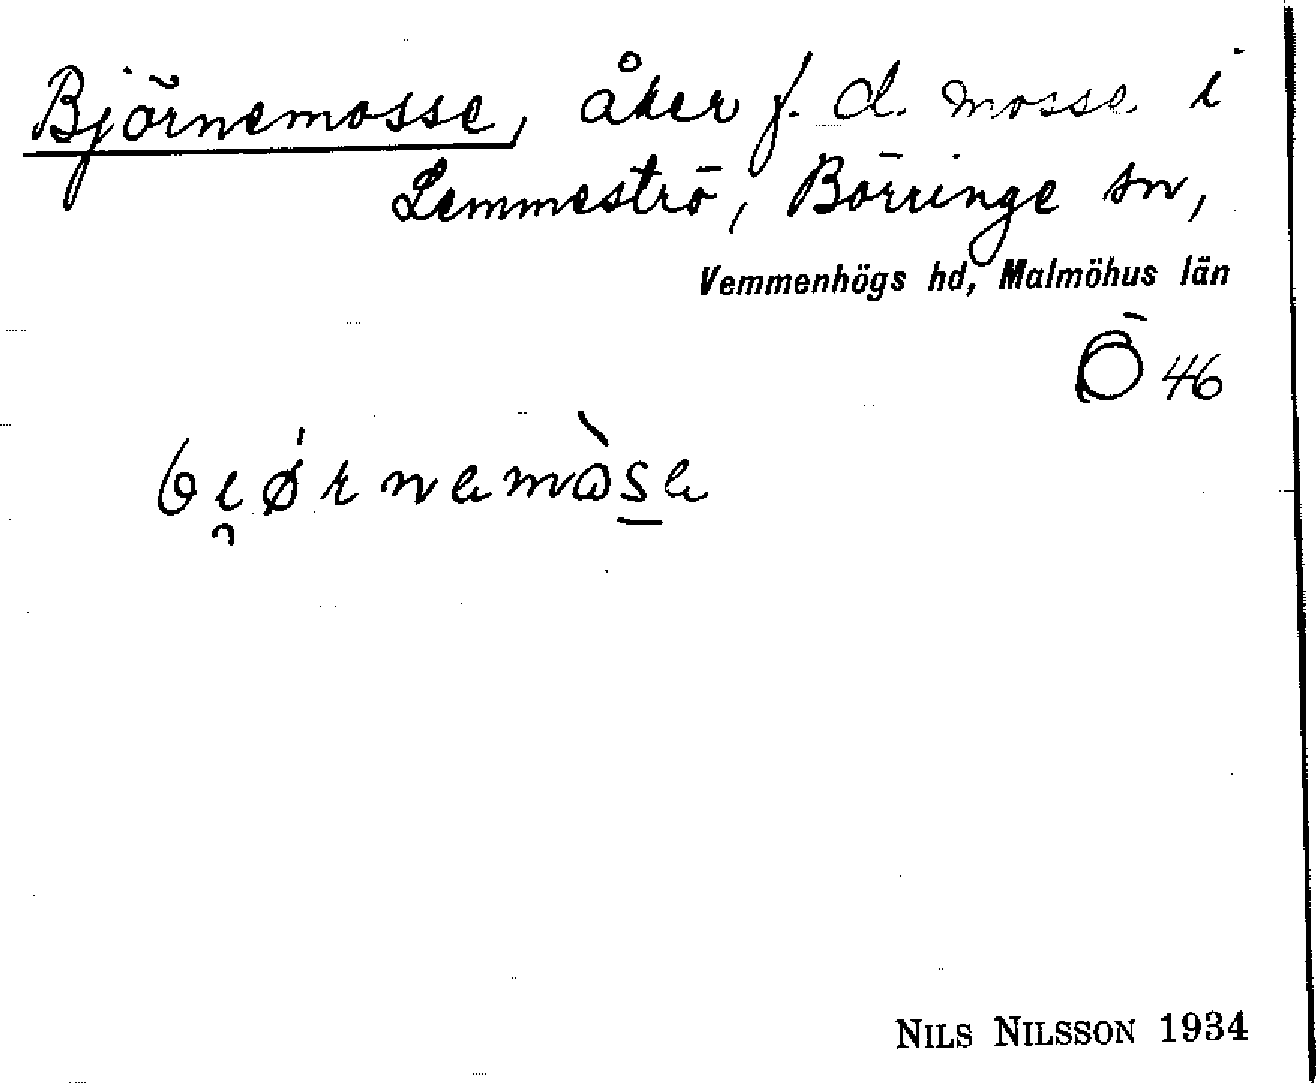 Björnemosse, åker f. d. mosse i
Lemmeströ, Börringe sn,
Vemmenhögs hd, Malmöhus län
Ö 46
bi̯ǿrnemòs̱e
NILS NILSSON 1934